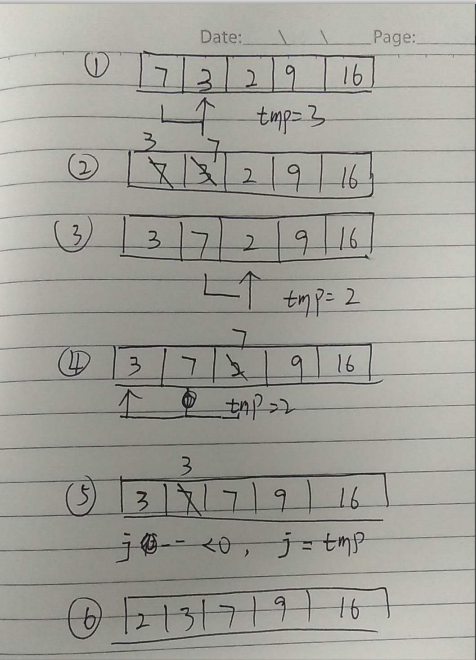 Date: \ \ Page:
① 7 3 2 9 16
tmp=3
3 7
② 7 3 2 9 16
③ 3 7 2 9 16
tmp=2
7
④ 3 7 2 9 16
tmp=2
3
⑤ 3 7 7 9 16
j-- <0, j=tmp
⑥ 2 3 7 9 16